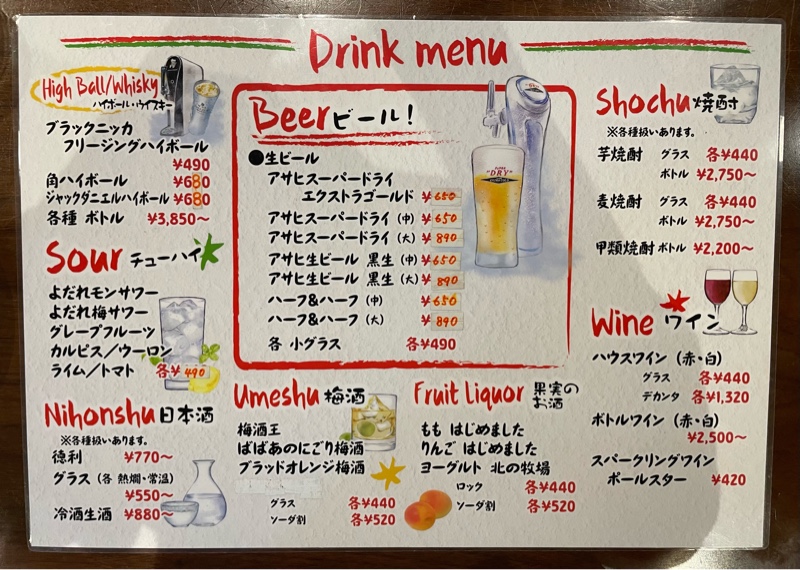 Drink menu
High Ball/Whisky
ハイボール・ウイスキー
ブラックニッカ
フリージングハイボール
¥490
角ハイボール ¥680
ジャックダニエルハイボール ¥680
各種 ボトル ¥3,850～
Sour チューハイ
よだれモンサワー
よだれ梅サワー
グレープフルーツ
カルピス／ウーロン
ライム／トマト 各¥490
Nihonshu 日本酒
※各種扱いあります。
徳利 ¥770～
グラス（各 熱燗・常温）
¥550～
冷酒生酒 ¥880～
Beer ビール！
●生ビール
アサヒスーパードライ
エクストラゴールド ¥650
アサヒスーパードライ（中）¥650
アサヒスーパードライ（大）¥890
アサヒ生ビール 黒生（中）¥650
アサヒ生ビール 黒生（大）¥890
ハーフ&ハーフ（中） ¥650
ハーフ&ハーフ（大） ¥890
各 小グラス 各¥490
DRY
Umeshu 梅酒
梅酒王
ばばあのにごり梅酒
ブラッドオレンジ梅酒
グラス 各¥440
ソーダ割 各¥520
Fruit Liquor 果実の
お酒
もも はじめました
りんご はじめました
ヨーグルト 北の牧場
ロック 各¥440
ソーダ割 各¥520
Shochu 焼酎
※各種扱いあります。
芋焼酎 グラス 各¥440
ボトル ¥2,750～
麦焼酎 グラス 各¥440
ボトル ¥2,750～
甲類焼酎 ボトル ¥2,200～
Wine ワイン
ハウスワイン（赤・白）
グラス 各¥440
デカンタ 各¥1,320
ボトルワイン（赤・白）
¥2,500～
スパークリングワイン
ポールスター ¥420